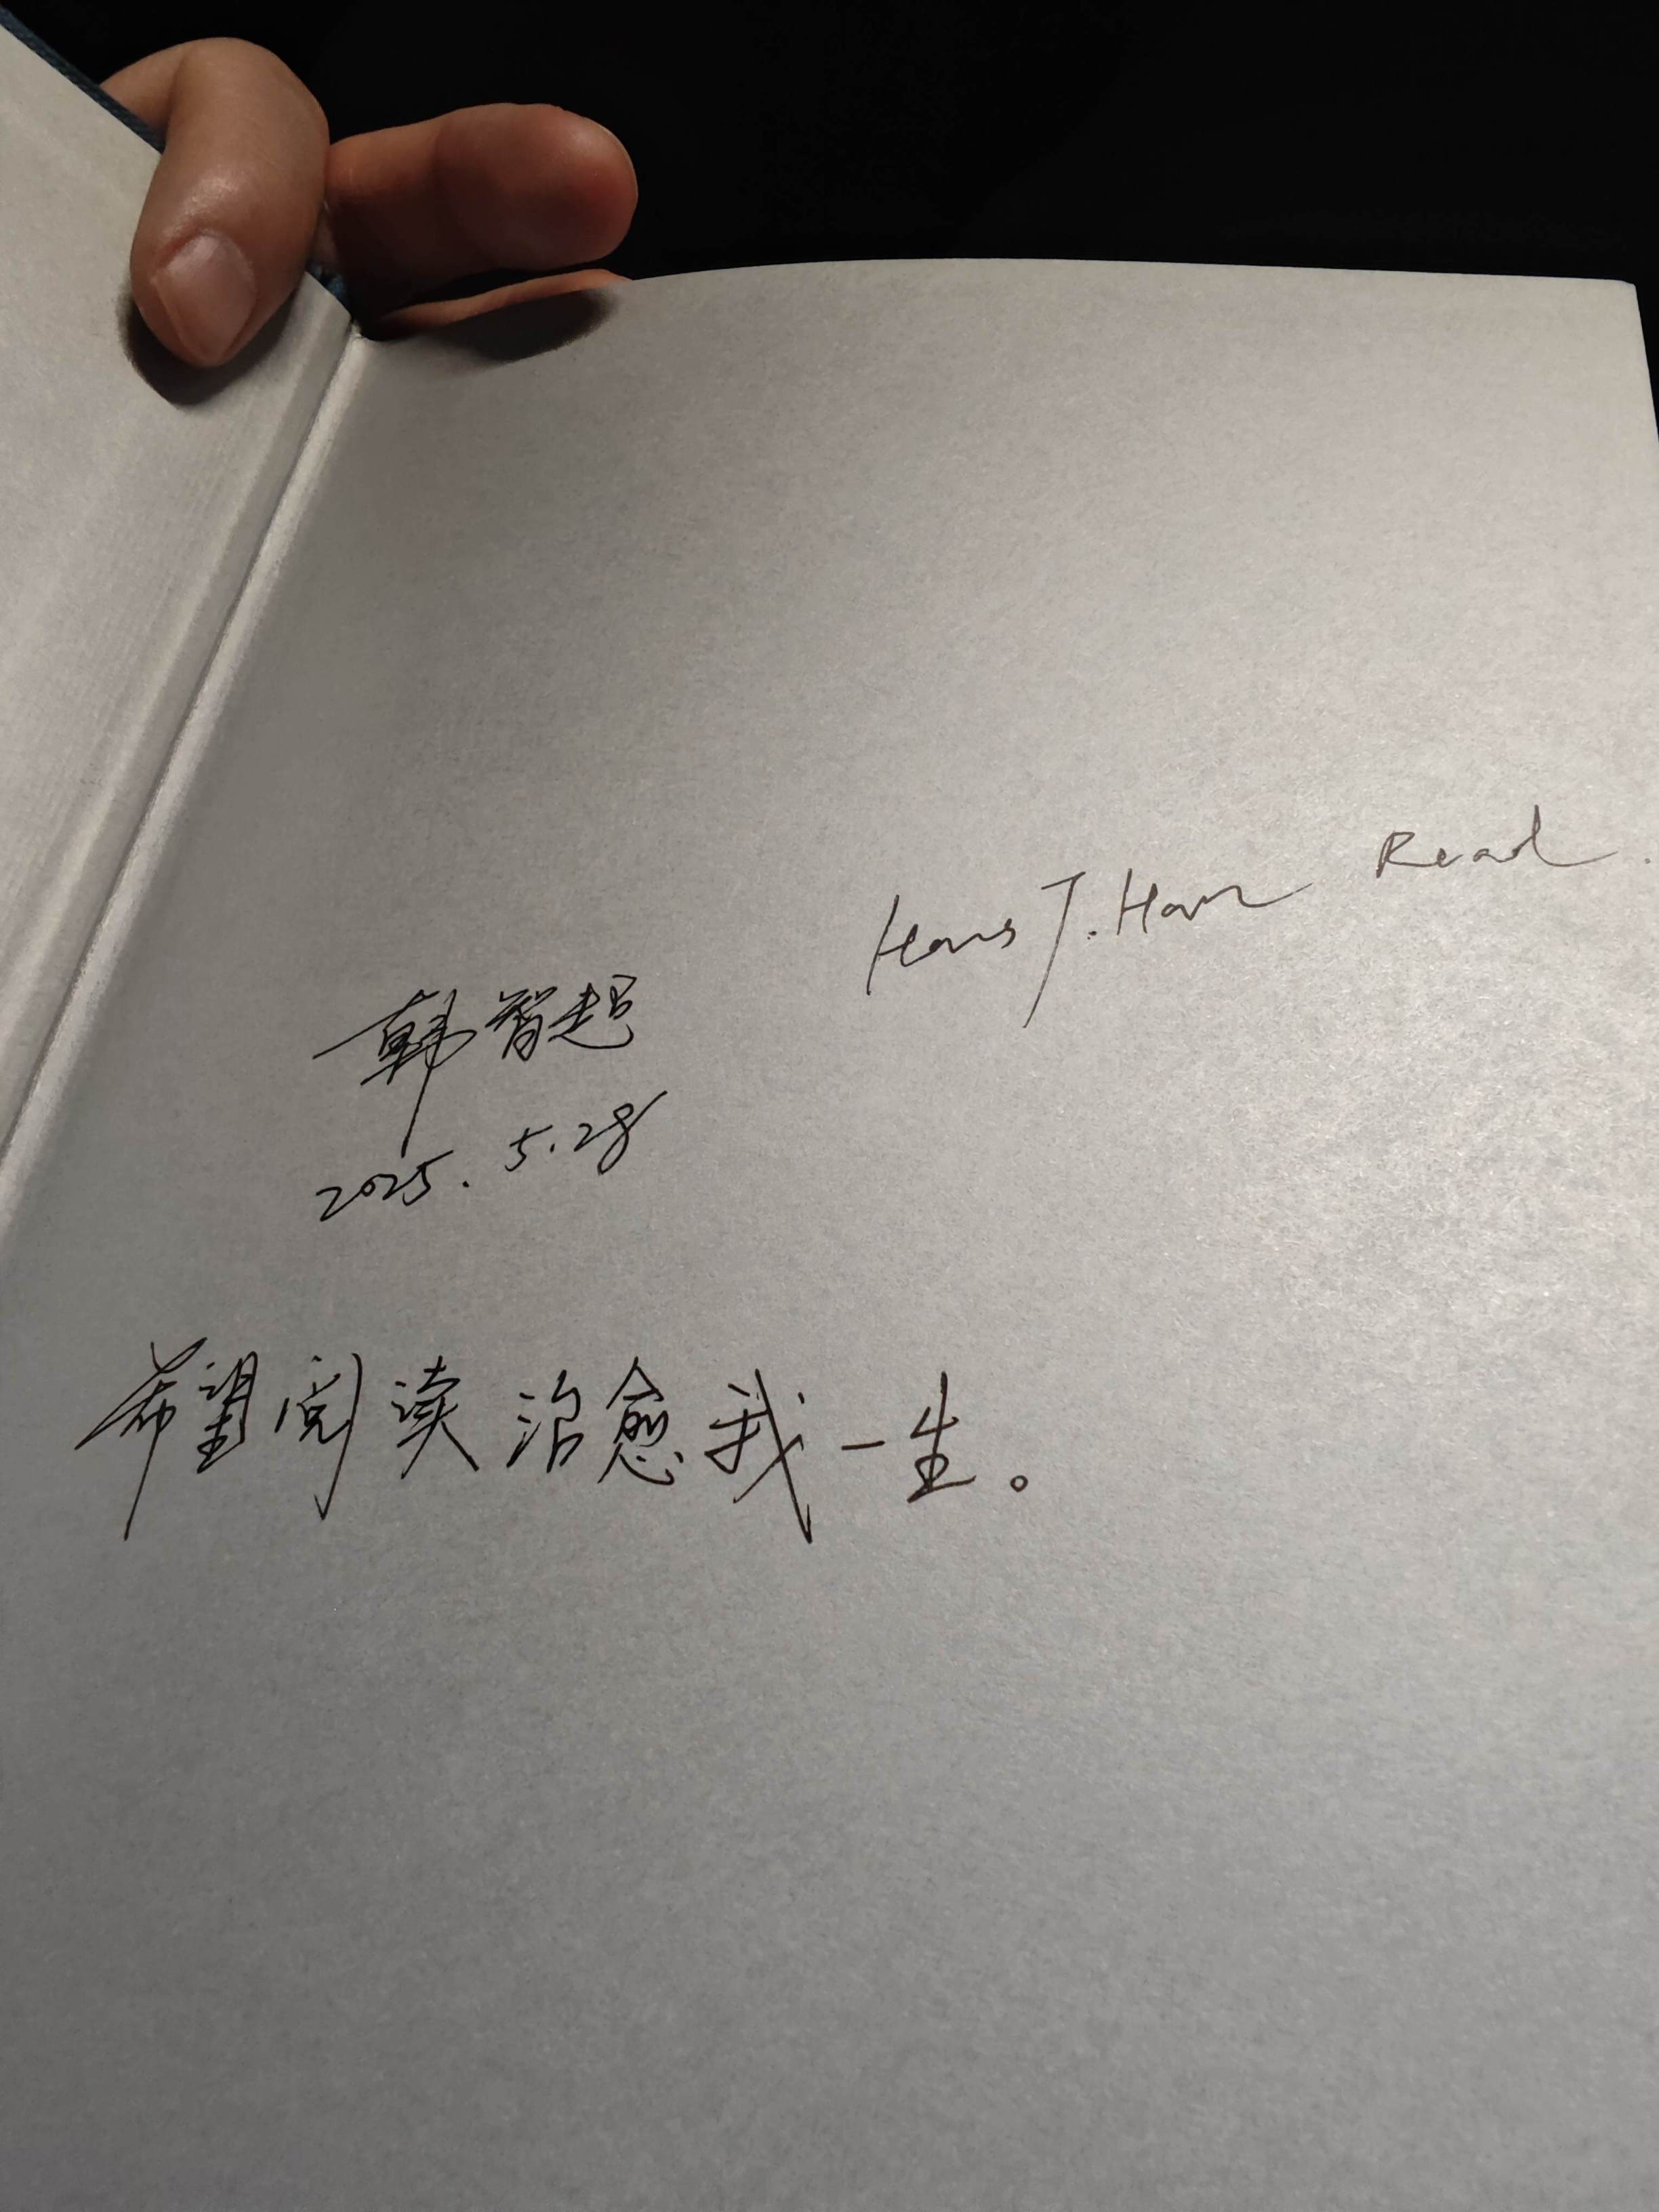 Hans J. Han Read.
韩智超
2025.5.28
希望阅读治愈我一生。